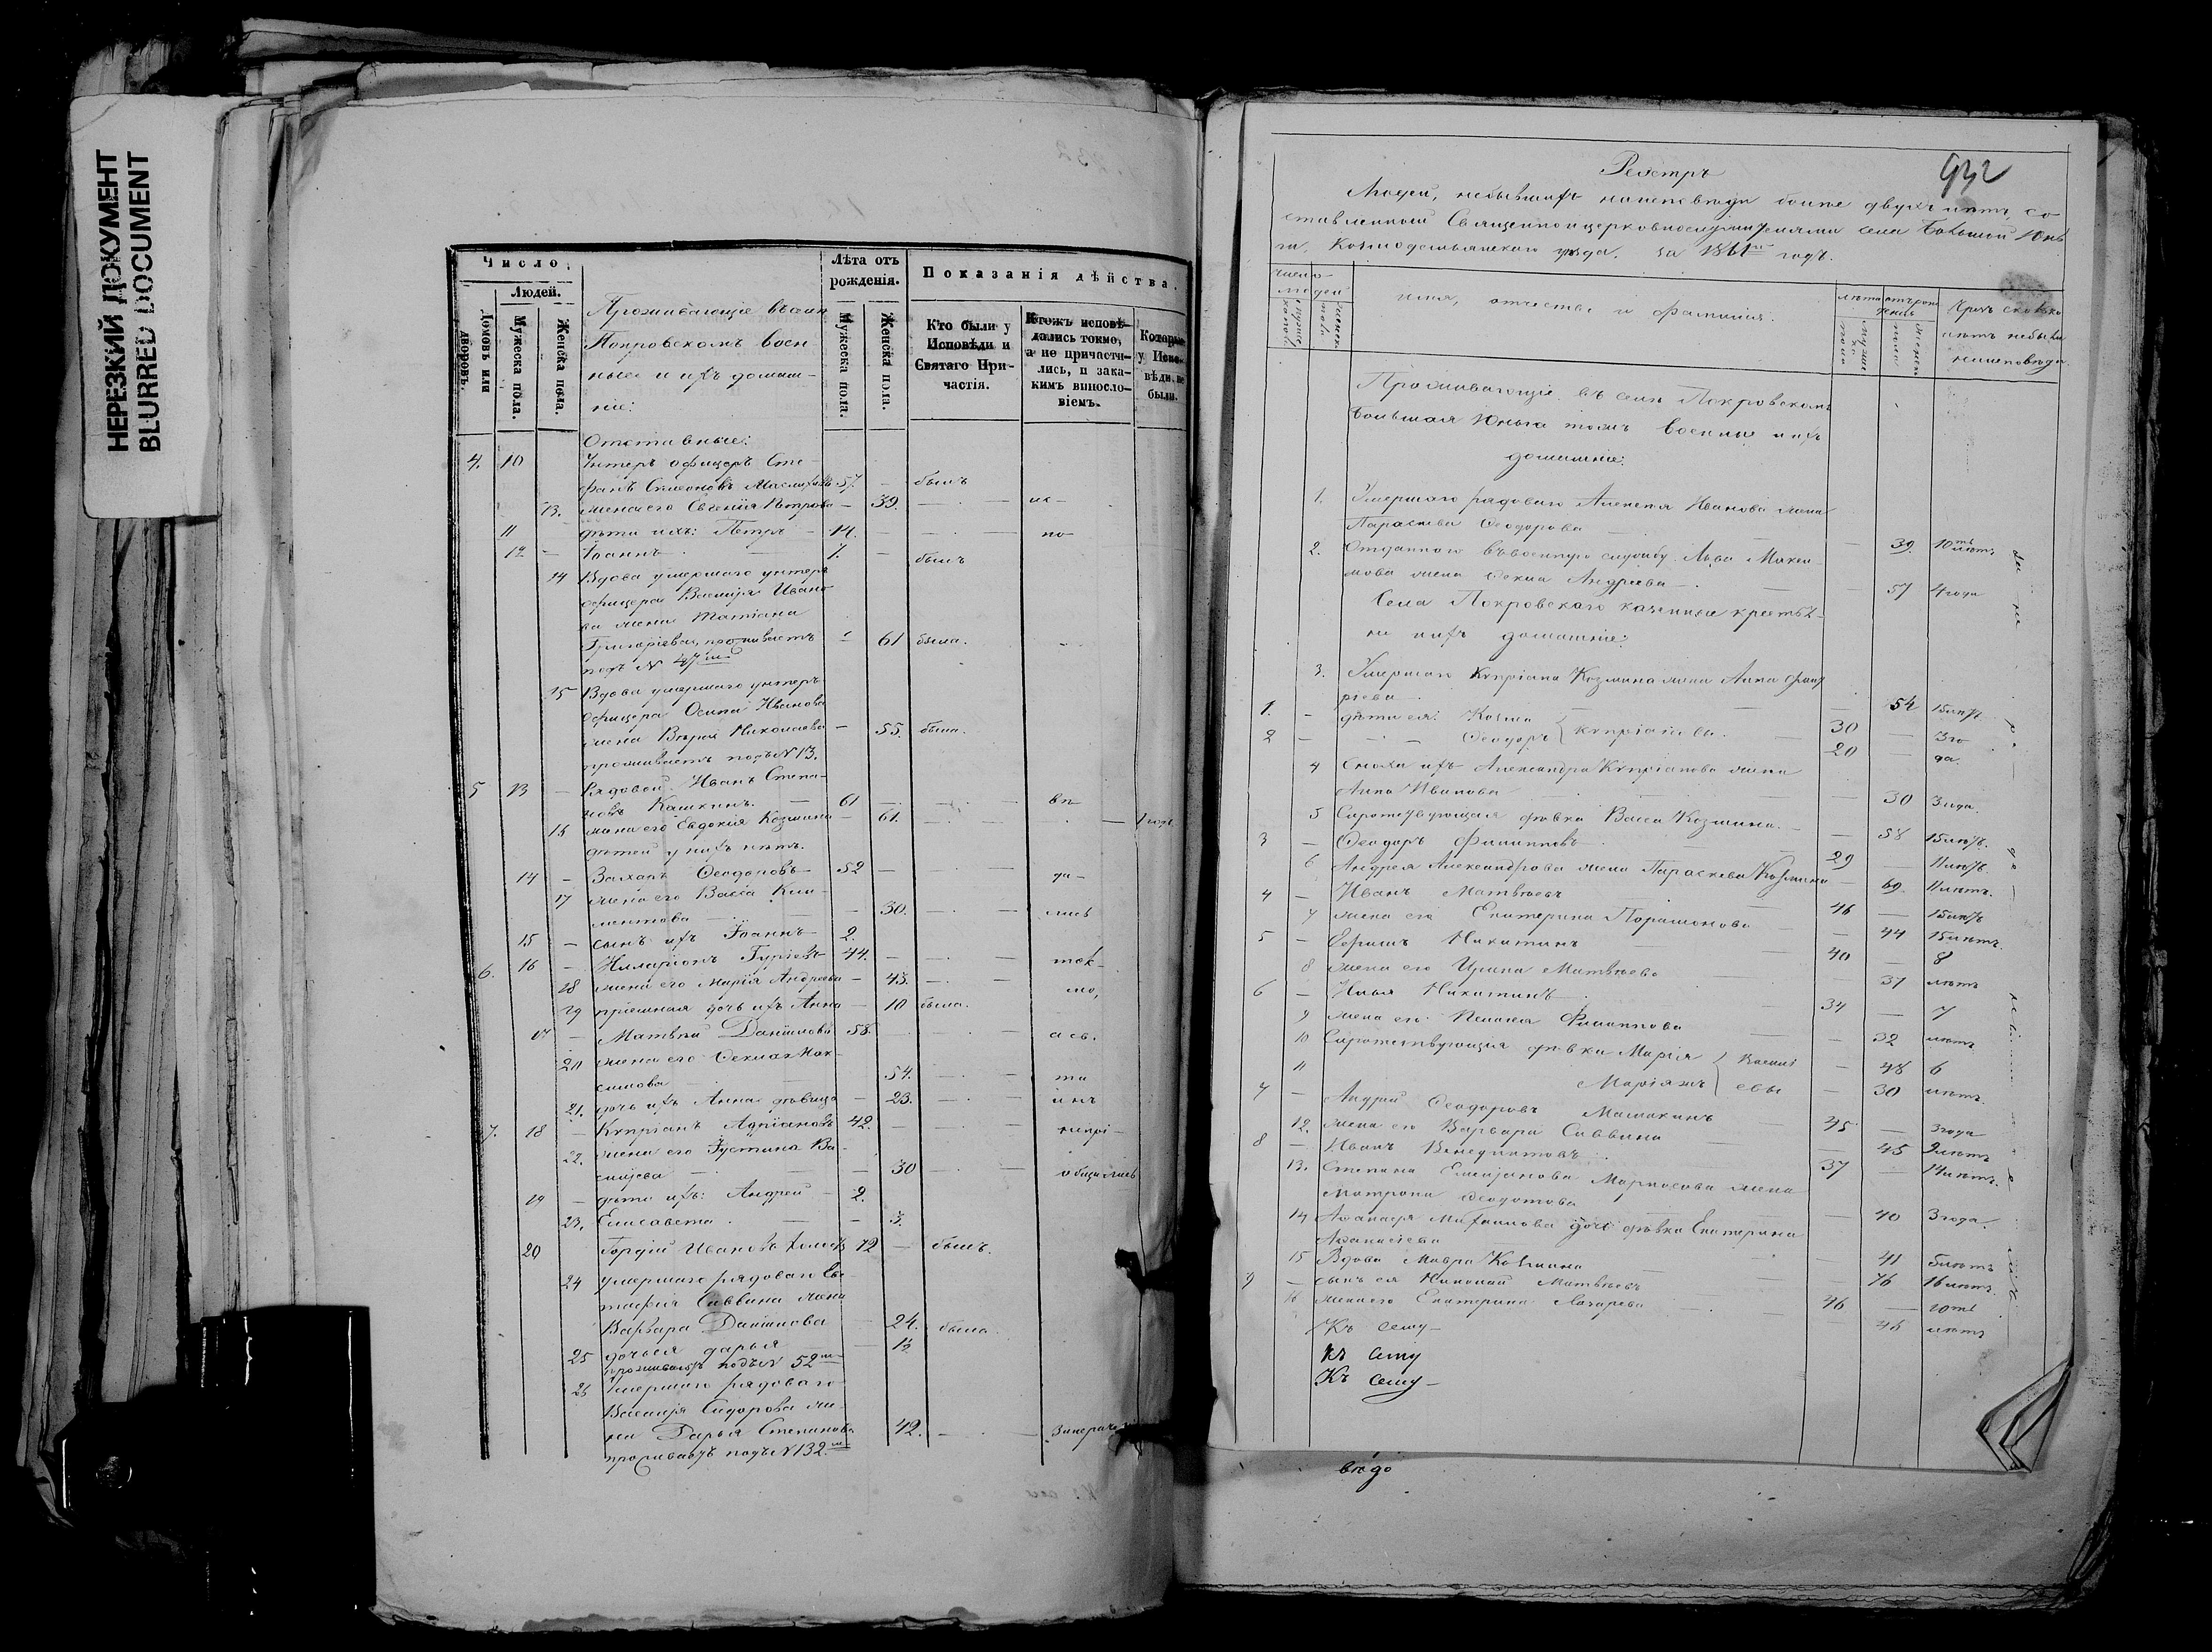 НЕРЕЗКИЙ ДОКУМЕНТ
BLURRED DOCUMENT
Число
Людей.
Домовъ или дворовъ.
Мужеска пола.
Женска пола.
Проживающіе въ селѣ
Покровскомъ воен-
ные и ихъ домаш-
ніе:
Лѣта отъ рожденія.
Мужеска пола.
Женска пола.
Показанія дѣйства.
Кто были у Исповѣди и Святаго Причастія.
Ктожъ исповѣдались токмо, а не причастились, и за какимъ винословіемъ.
Которые у Исповѣди не были.
Отставные:
4. 10 Унтеръ офицеръ Сте-
фанъ Симеоновъ 57. былъ
13. жена его Евгенія Петрова 39. не
11 дѣти ихъ: Петръ 14. по
12 Іоаннъ 7. былъ
14 Вдова умершаго унтеръ
офицера Василія Ивано-
ва жена Татіана
Григоріева, проживаетъ 61 была.
подъ № 47
15 Вдова умершаго унтеръ
офицера Осипа Иванова
жена Вѣра Николаева 55. была.
проживаетъ подъ № 13.
5 13 Рядовой Иванъ Степа-
новъ Кашкинъ. 61 вѣ
16 жена его Евдокія Козмина 61. 1 годъ
дѣтей у нихъ нѣтъ.
14 Захаръ Ѳеодоровъ 52 да
17 жена его Васса Кли-
ментова 30. лись
15 сынъ ихъ Іоаннъ 2.
6. 16 Иларіонъ Гуріевъ 44. ток-
18 жена его Марія Андреева 43. мо,
19 пріемная дочь ихъ Анна 10 была.
17 Матвѣй Даниловъ 58. а св.
20 жена его Ѳекла Мак-
симова 54. та
21. дочь ихъ Анна дѣвица 23. инъ
7. 18 Кѵпріанъ Адріановъ 42. непрі-
22. жена его Іустина Ва-
силіева 30 общились
19 дѣти ихъ: Андрей 2.
23. Елисавета 3.
20 Гордій Ивановъ 72 былъ.
24 умершаго рядоваго Ев-
стафія Саввина жена
Варвара Данилова 24. была.
25 дочь ея Дарья 1½
проживаютъ подъ № 52
26 Умершаго рядоваго
Василія Сидорова же-
на Дарья Степанова 42.
проживаетъ подъ № 132
932
Реестръ
Людей, небывшихъ наисповѣди болѣе двухъ лѣтъ, со-
ставленный Священноицерковнослужителями села Большой Юнь-
ги, Козмодемьянскаго уѣзда. за 1861й годъ.
число людей
мужска пола
женска пола
имя, отчество и фамилія.
лѣта отъ рожденія
мужска пола
женска пола
Кто сколько
лѣтъ небыли
наисповѣди
Проживающіе въ селѣ Покровскомъ
Большая Юньга тожъ военные и ихъ
домашніе:
1. Умершаго рядоваго Алексѣя Иванова жена
Параскева Ѳеодорова 39. 10ть лѣтъ
2. Отданнаго въ военную службу Льва Макси-
мова жена Ѳекла Андреева 57 4 года
Села Покровскаго казенные крестья-
не и ихъ домашніе:
3. Умершаго Кѵпріана Козмина жена Анна
54 15 лѣтъ
1. дѣти ея: Козма } Кѵпріановы 30 3 го
2 Ѳеодоръ 20 да.
4 Сноха ихъ Александра Кѵпріанова жена
Анна Иванова 30 3 года
5 Сиротствующая дѣвка Васса Козмина. 58 15 лѣтъ.
3 Ѳеодоръ Филипповъ 29 11 лѣтъ.
6 Андрея Александрова жена Параскева Козмина 69. 11 лѣтъ.
4 Иванъ Матвѣевъ 46 15 лѣтъ
7 жена его Екатерина Парамонова 44 15 лѣтъ.
5 Ефимъ Никитинъ 40 8
8 жена его Ирина Матвѣева 37 лѣтъ
6 Илья Никитинъ 34 7
9 жена его Пелагея Филиппова 32 лѣтъ
10 Сиротствующія дѣвки Марія } Василі- 48 6
11 Маріяжъ } евы 30 лѣтъ.
7 Андрей Ѳеодоровъ 45 3 года
12. жена его Варвара Саввина 45 9 лѣтъ
8 Иванъ Венедиктовъ 37 14 лѣтъ.
13. Степана Емиліанова жена
Матрона Ѳеодотова 40 3 года.
14 Аѳанасія Михаилова дочь дѣвка Екатерина
Аѳанасіева 41 5 лѣтъ
15 Вдова Мавра Козмина 76 16 лѣтъ
9 сынъ ея Николай Матвѣевъ 46 10ть
16 жена его Екатерина Лазарева 45 лѣтъ
Къ сему
Къ сему
Къ сему
вѣдо